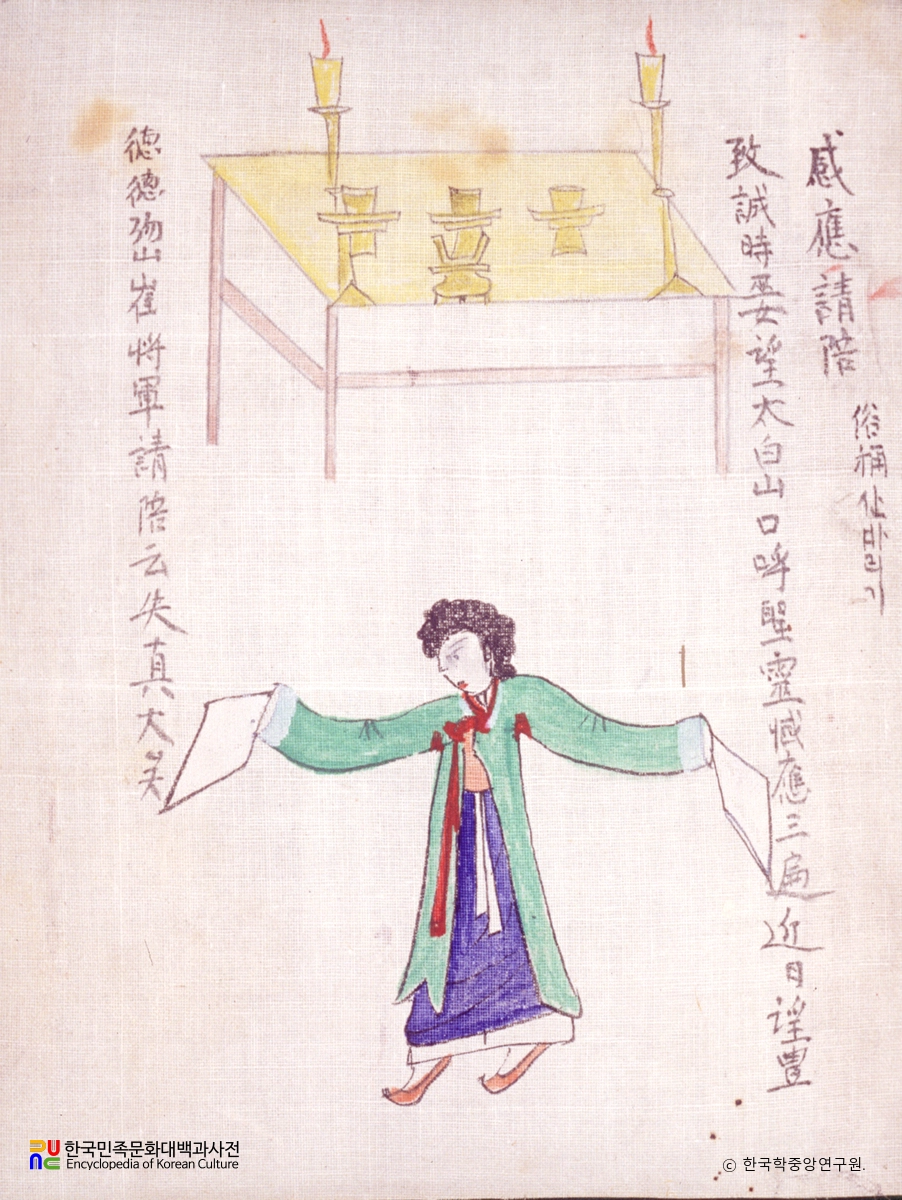 感應請陪
俗稱산바리기
致誠時巫女望太白山口呼聖靈感應三遍近日望豊
德德物山崔將軍請陪云失真大笑
한국민족문화대백과사전
Encyclopedia of Korean Culture
ⓒ 한국학중앙연구원.